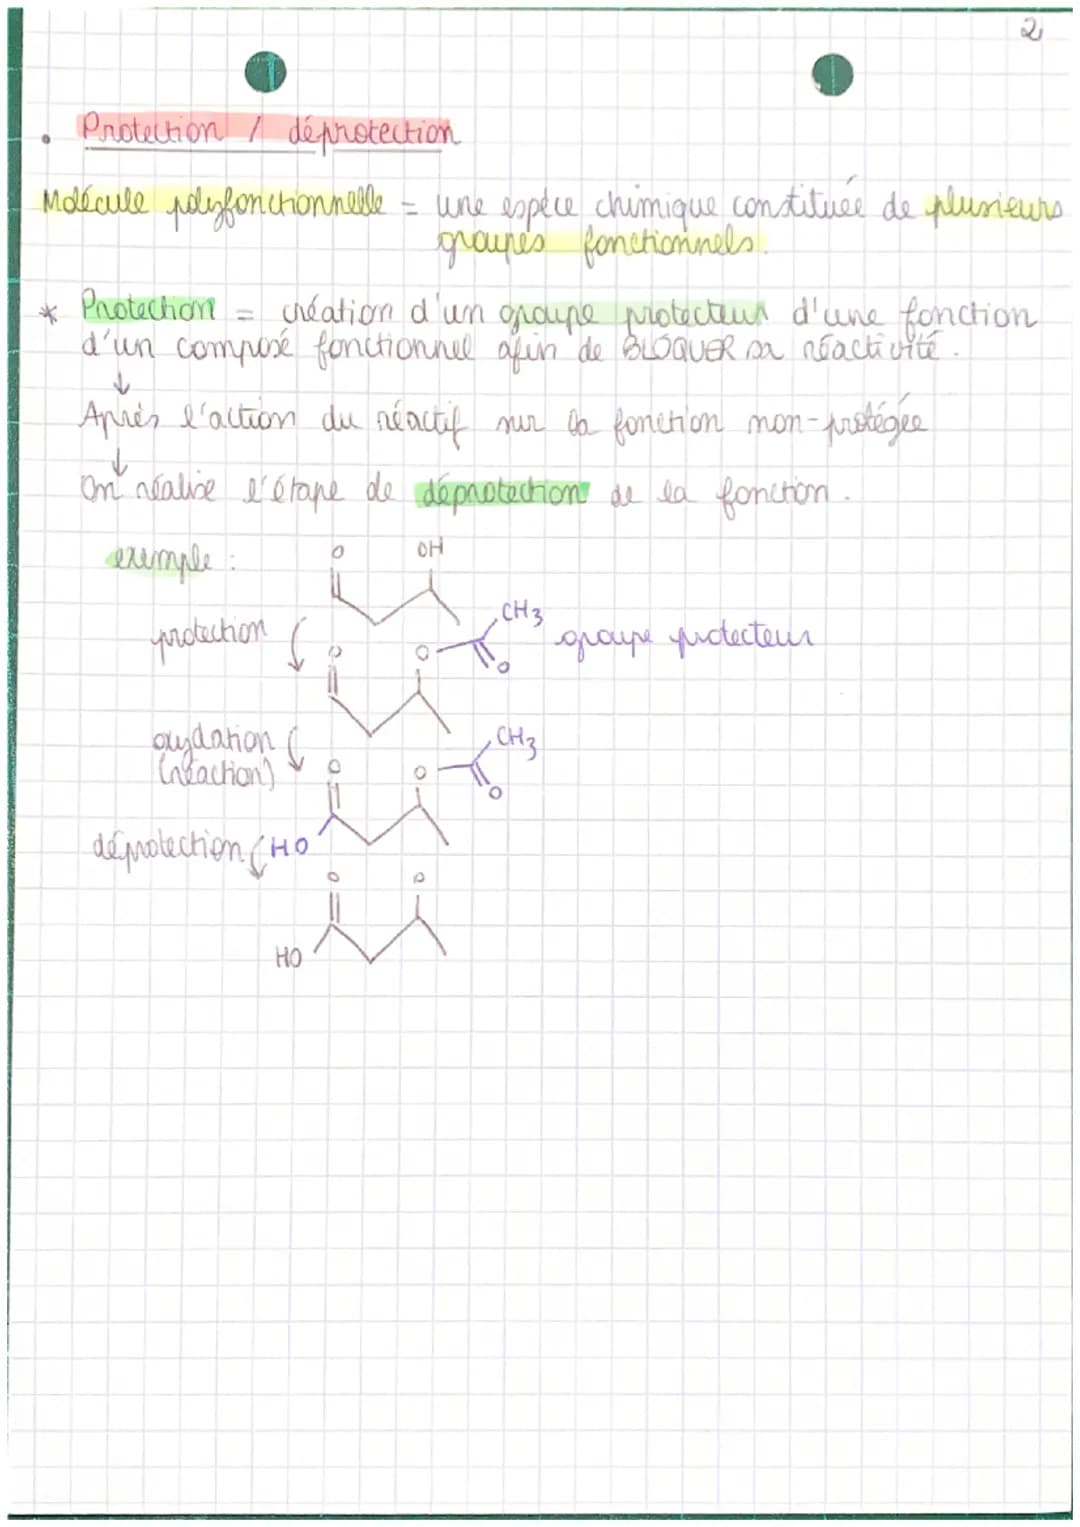 2
• Protection / déprotection
Molécule polyfonctionnelle = une espèce chimique constituée de plusieurs
groupes fonctionnels.
* Protection = création d'un groupe protecteur d'une fonction
d'un composé fonctionnel afin de BLOQUER sa réactivité.
↓
Après l'action du réactif sur la fonction non-protégée
↓
On réalise l'étape de déprotection de la fonction.
exemple :
O OH
protection
CH3 groupe protecteur
O O O
oxydation
(réaction)
CH3
O O O
déprotection HO
O O
HO